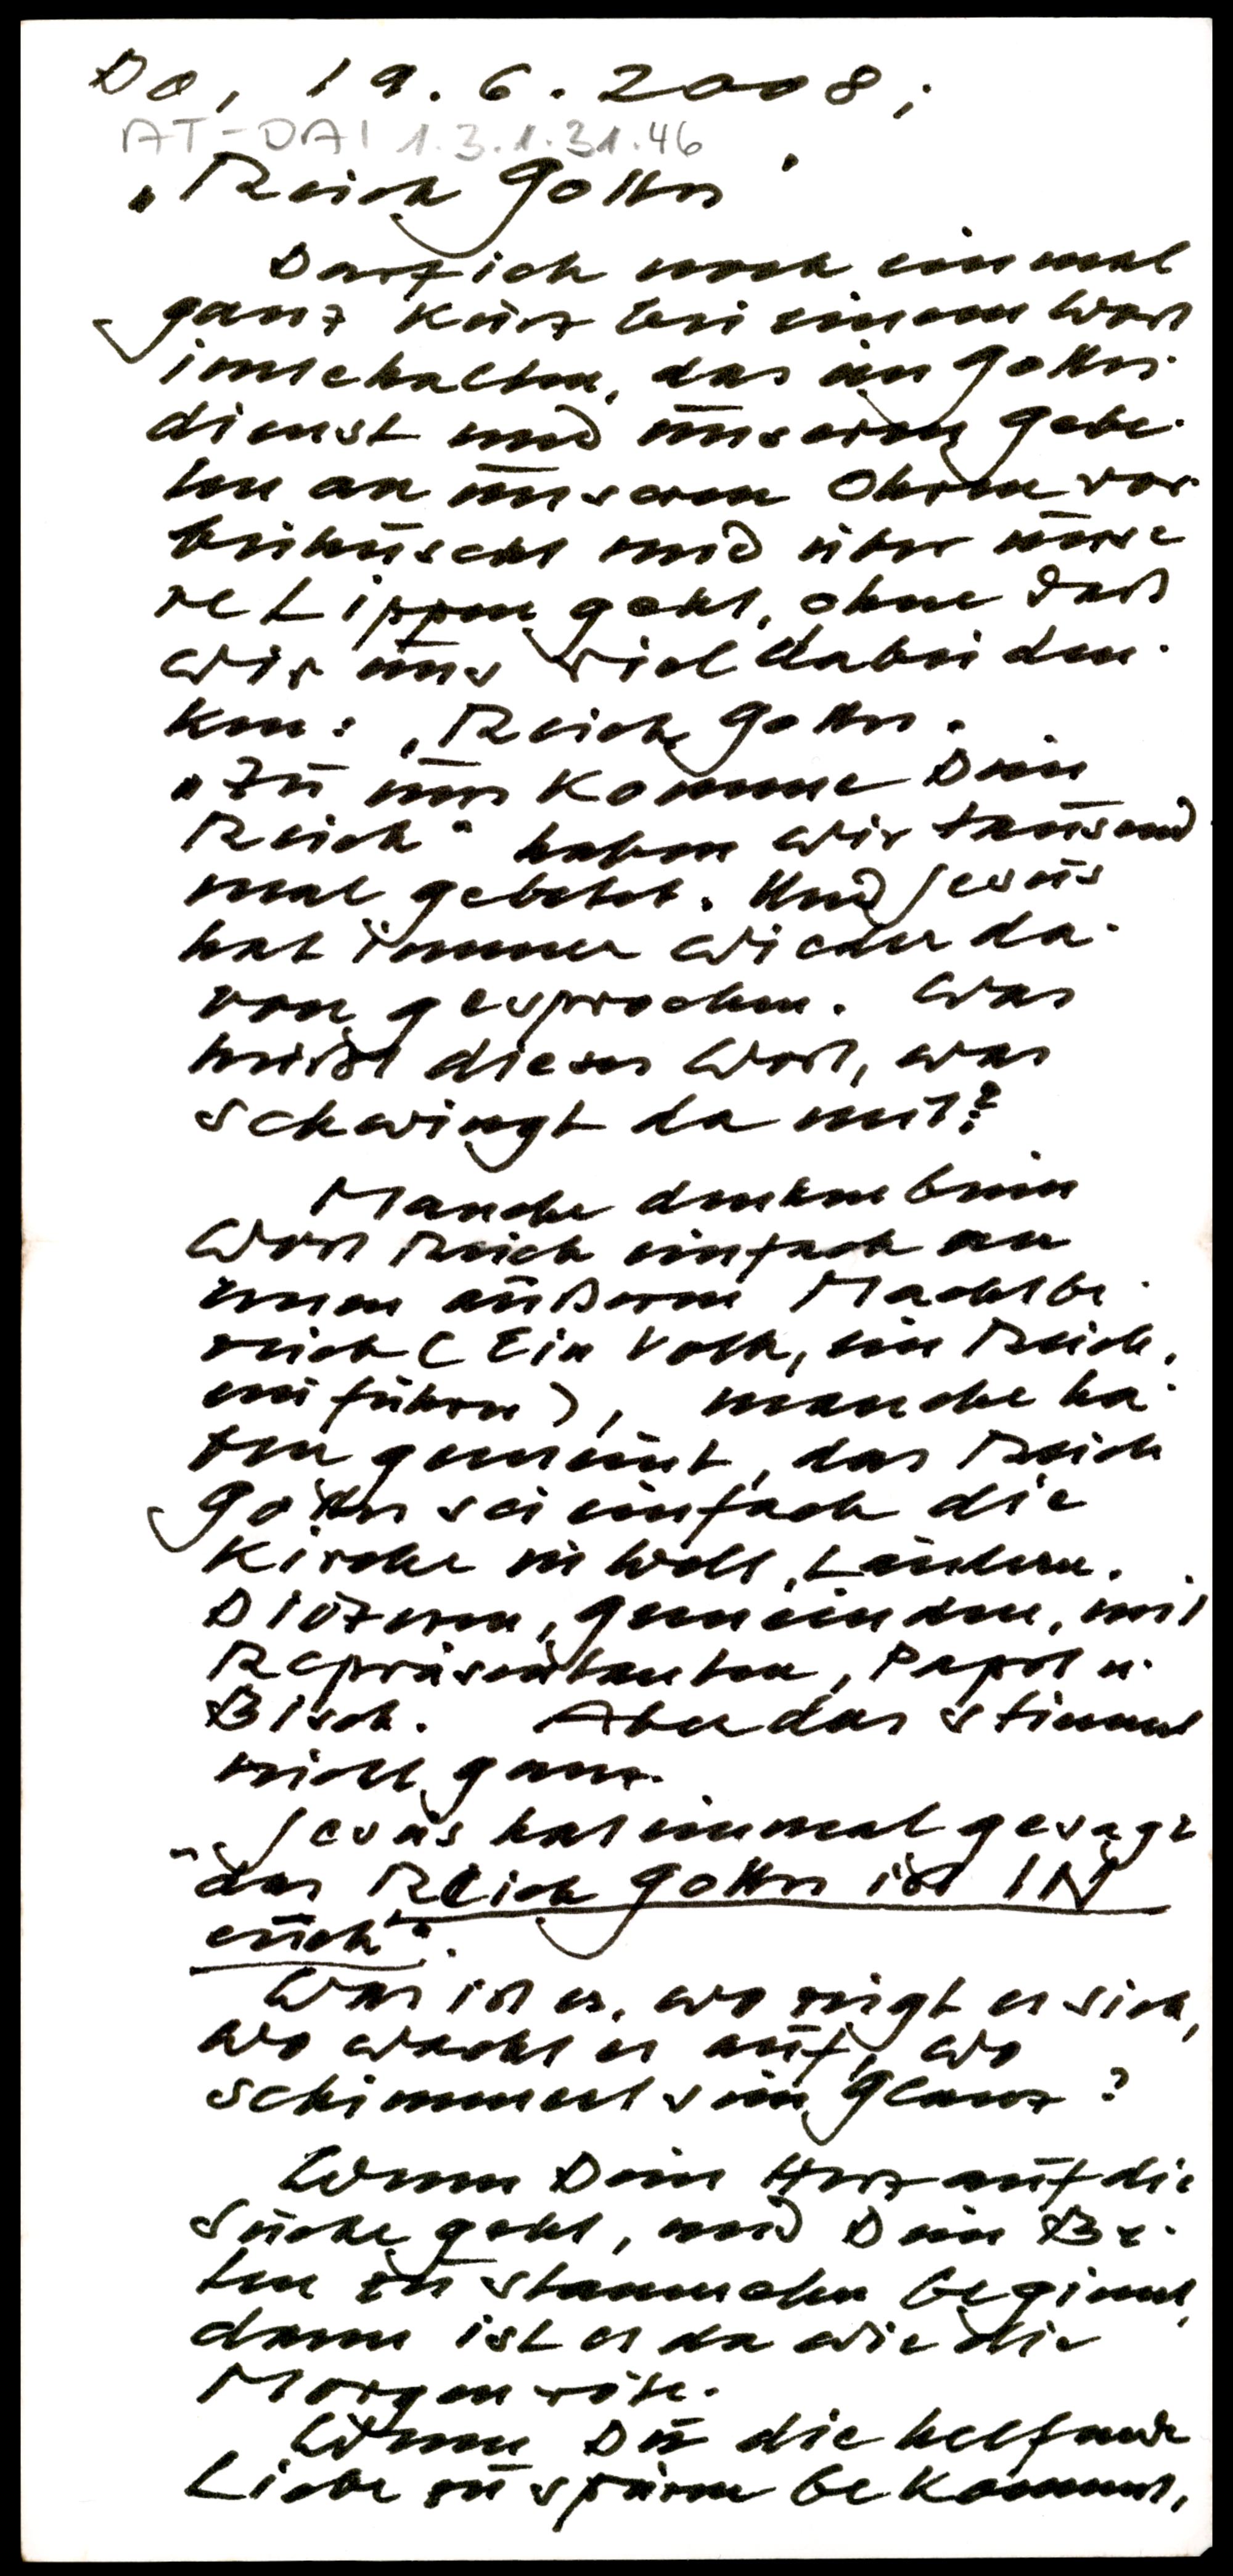 Do, 19. 6. 2008;
AT-DAI 1.3.1.31.46
„Reich Gottes"
Darf ich noch einmal
ganz kurz bei einem Wort
innehalten, das im Gottes-
dienst und unseren Gebe-
ten an unseren Ohren vor-
beihuscht und über unse
re Lippen geht, ohne daß
wir uns viel dabei den-
ken: „Reich Gottes.
„Zu uns komme Dein
Reich" haben wir tausend
mal gebetet. Und Jesus
hat immer wieder da-
von gesprochen. Was
heißt dieses Wort, was
schwingt da mit?
Manche denken beim
Wort Reich einfach an
einen äußeren Machtbe-
reich (Ein Volk, ein Reich,
ein Führer), manche ha-
ben gemeint, das Reich
Gottes sei einfach die
Kirche in Welt, Ländern,
Diözesen, Gemeinden, mit
Repräsentanten, Papst u.
Bisch. Aber das stimmt
nicht ganz.
Jesus hat einmal gesagt
„das Reich Gottes ist IN
euch".
Was ist es, wo zeigt es sich,
wo wacht es auf, wo
schimmert sein Glanz?
Wenn Dein Herz auf die
Suche geht, und Dein Be-
ten zu stammeln beginnt,
dann ist es da wie die
Morgenröte.
Wenn Du die helfende
Liebe zu spüren bekommst,